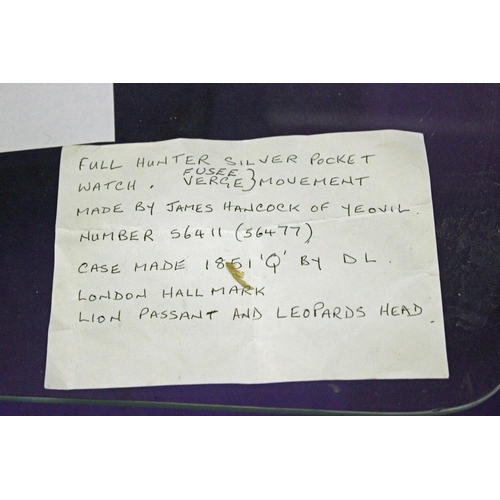 FULL HUNTER SILVER POCKET
FUSEE
WATCH. VERGE} MOVEMENT
MADE BY JAMES HANCOCK OF YEOVIL.
NUMBER 56411 (56477)
CASE MADE 1851 'Q' BY D L.
LONDON HALL MARK
LION PASSANT AND LEOPARDS HEAD.